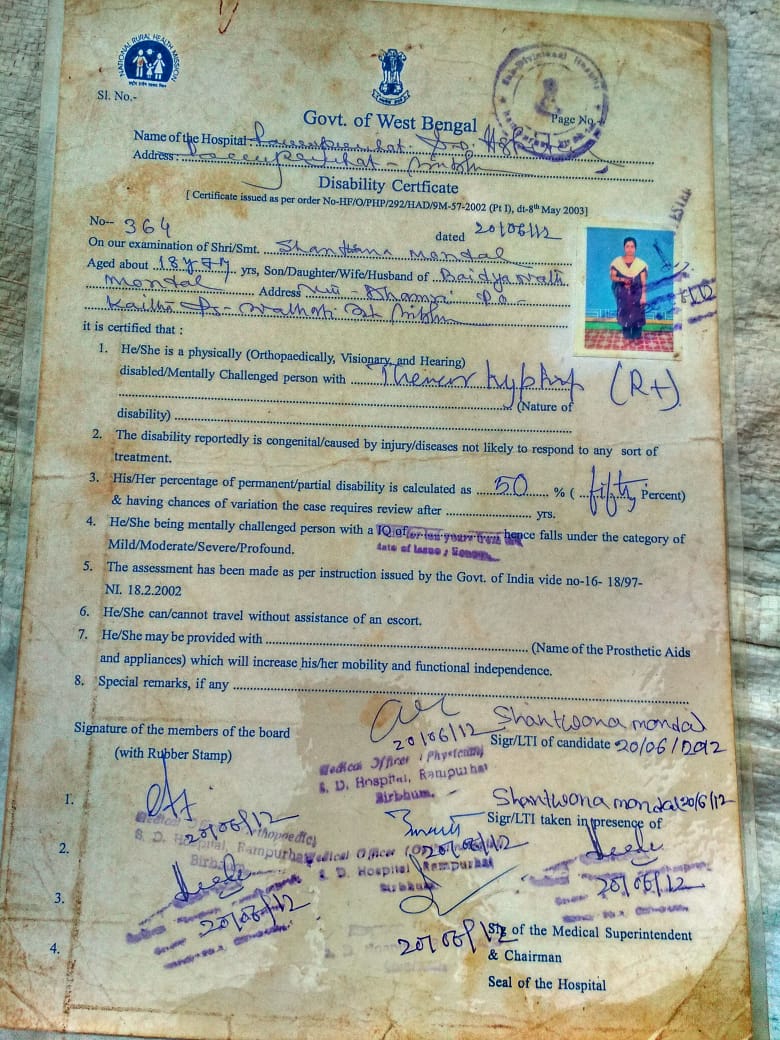 NATIONAL RURAL HEALTH MISSION
Sub-Divisional Hospital
Sl. No.-
Page No.
Govt. of West Bengal
Name of the Hospital :
Address :
Disability Certficate
[ Certificate issued as per order No-HF/O/PHP/292/HAD/9M-57-2002 (Pt I), dt-8th May 2003]
No-- 364 dated 20/06/12
On our examination of Shri/Smt. Shantwana Mondal
Aged about 18 yrs, Son/Daughter/Wife/Husband of Baidyanath
Mondal Address P.O -
it is certified that :
1. He/She is a physically (Orthopaedically, Visionary, and Hearing)
disabled/Mentally Challenged person with (R+)
(Nature of
disability)
2. The disability reportedly is congenital/caused by injury/diseases not likely to respond to any sort of
treatment.
3. His/Her percentage of permanent/partial disability is calculated as 50 % ( fifty Percent)
& having chances of variation the case requires review after yrs.
4. He/She being mentally challenged person with a IQ of hence falls under the category of
Mild/Moderate/Severe/Profound. date of issue
5. The assessment has been made as per instruction issued by the Govt. of India vide no-16- 18/97-
NI. 18.2.2002
6. He/She can/cannot travel without assistance of an escort.
7. He/She may be provided with (Name of the Prosthetic Aids
and appliances) which will increase his/her mobility and functional independence.
8. Special remarks, if any
Signature of the members of the board
(with Rubber Stamp)
20/06/12
Medical Officer (Physician)
S. D. Hospital, Rampurhat
Birbhum.
Shantwona mondal
Sigr/LTI of candidate 20/06/2012
Shantwona mondal 20/6/12
Sigr/LTI taken in presence of
1.
20/06/12
S. D. Hospital, Rampurhat
Birbhum
2.
20/06/12
Medical Officer
S. D. Hospital, Rampurhat
Birbhum
20/06/12
3.
20/06/12
4.
20/06/12
Sig of the Medical Superintendent
& Chairman
Seal of the Hospital